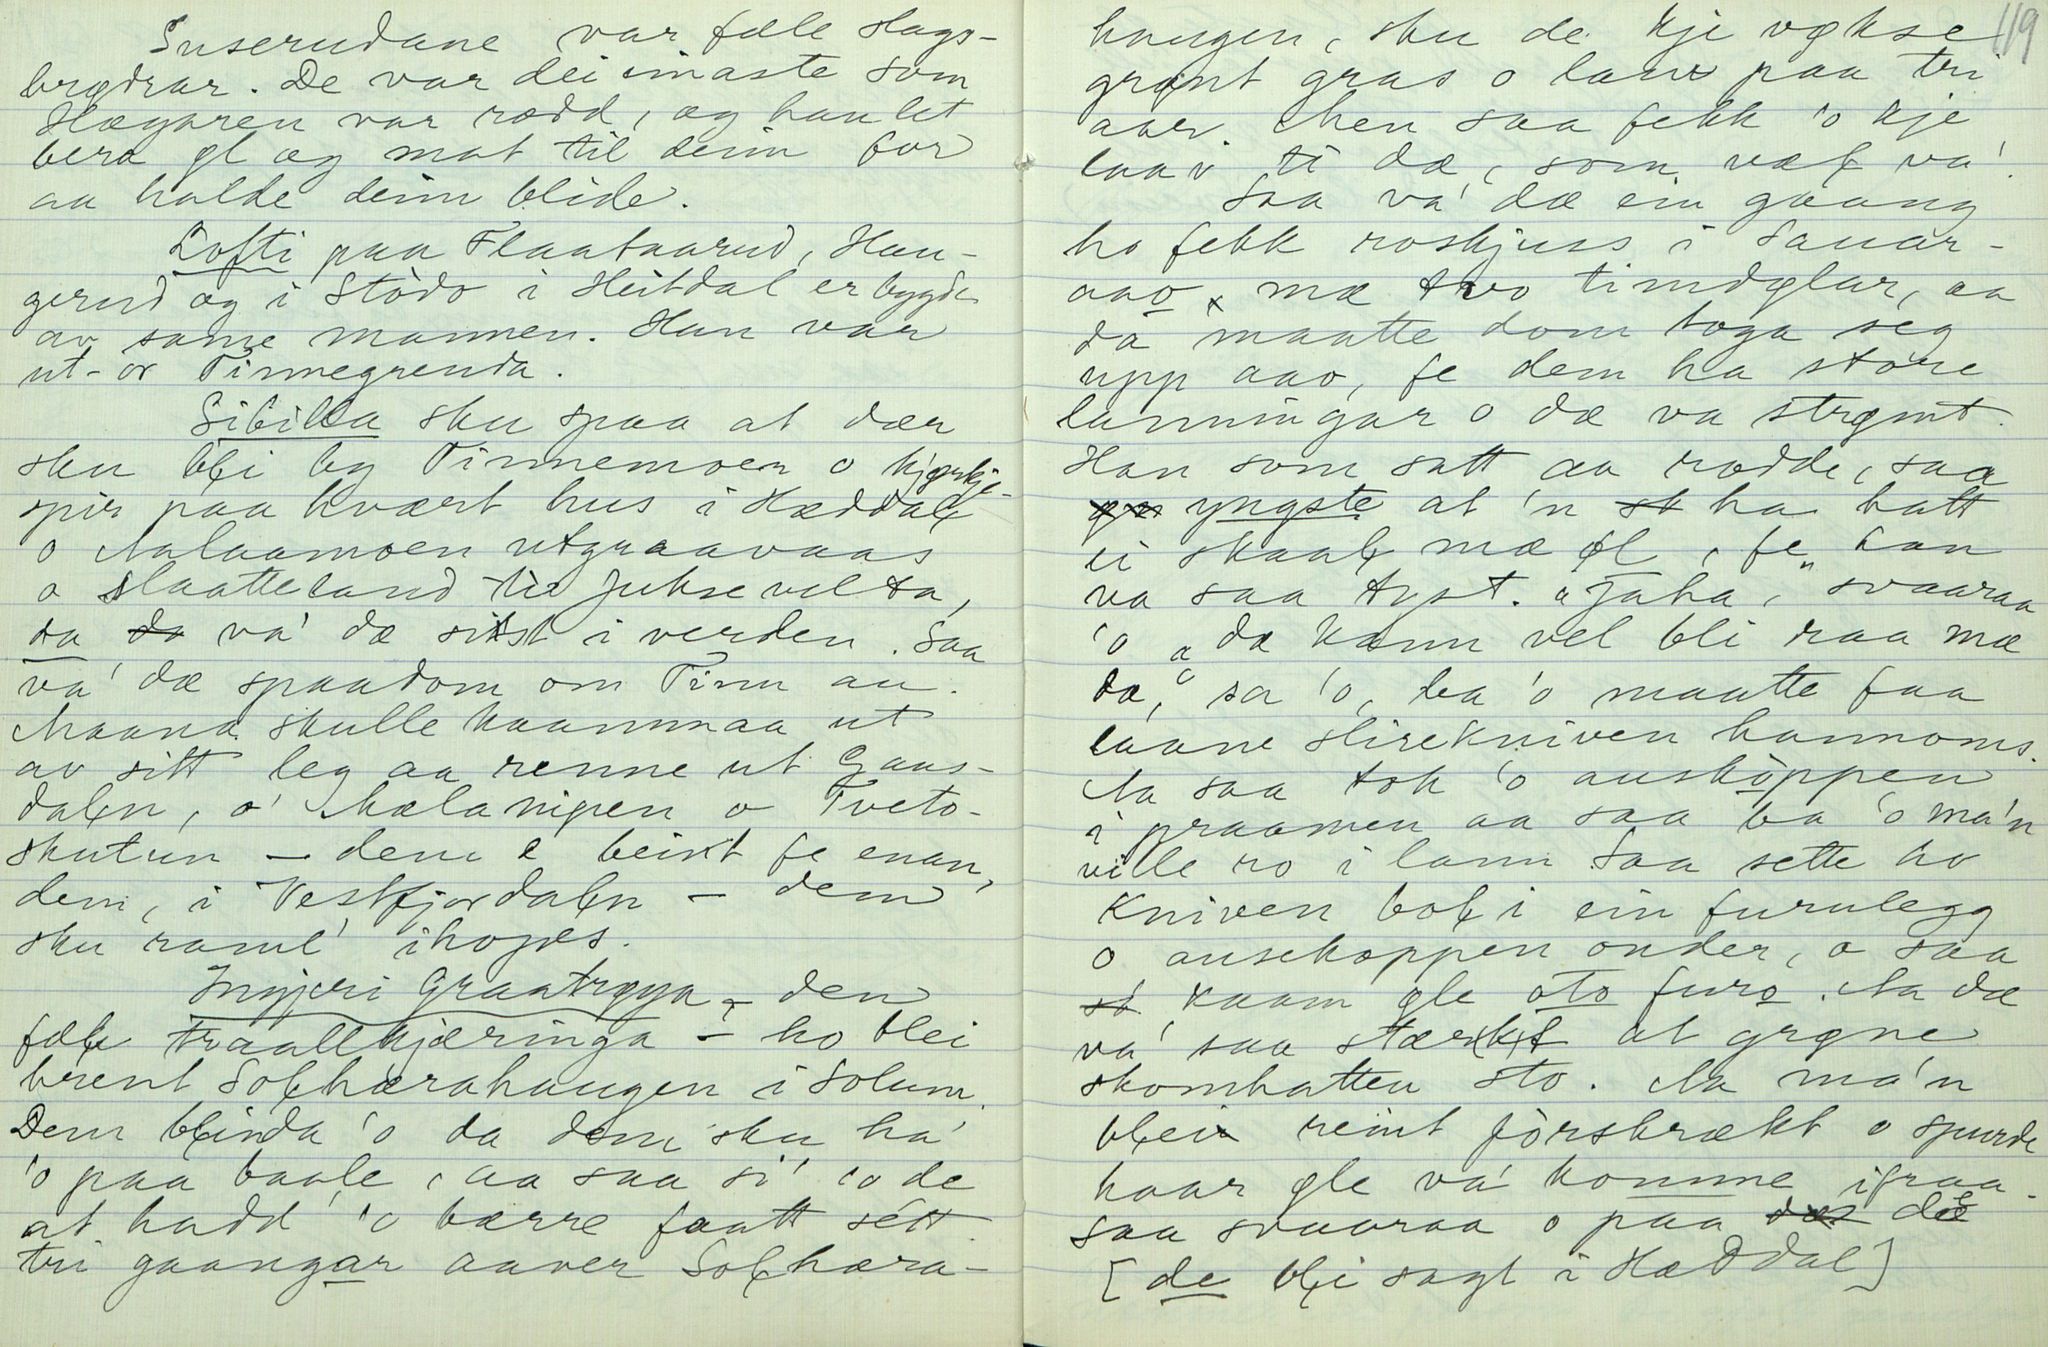 Suserudane var fæle slags-
brødrar. De var dei einaste som
Hægaren var rædd, og han let
bera øl og mat til deim for
aa halde deim blide.
Lofti paa Flaatearud, Hau-
gerud og i Stòdo i Heitdal er bygde
av same mannen. Han var
ut-or Tinnegrenda.
Sibilla sku spaa at dær
sku błi by Tinnemoen o kjørkje-
spir paa kvært hus i Hæddał
o Aalaamoen utgraavaas
o slaatteland te Juksevelta,
da va' dæ sitst i verden. Saa
va' dæ spaadom om Tinn au.
Maana skulle kaammaa ut
av sitt leg aa renne ut Gaus-
dałn, o' Mælanipen o Tveto-
skutun – dem e beint fe enan,
dem, i Vestfjordałn – dem
sku raml' ihopes.
Ingjeri Graatrøya – den
fæle traallkjæringa – ho blei
brent Sołhærahaugen i Solum.
Dem błinda 'o da dem sku ha'
'o paa baale, aa saa si' 'o de
at hadd' 'o bærre faatt sétt
tri gaangar aaver Sołhæra-
119
haugen, sku de kje vækse
grønt gras o lauv paa tri
aar. Men saa fekk 'o kje
laav ti dæ, som væł va'.
Saa va' dæ ein gaang
ho fekk roskjuss i Sauar-
aao mæ two timdølar, aa
da maatte dom toga seg
upp aao, fe dem ha store
lanningar o dæ va strømt.
Han som satt aa rodde, saa
yngste at 'n ha hatt
ei skaał mæ øl, fe han
va saa tyst. "Jaha, svaaraa
'o "dæ kann vel bli raa mæ
dæ," sa 'o, ba 'o maatte faa
laane slirekniven hannoms.
Aa saa tok 'o auskòppen
i praamen aa saa ba 'o ma'n
ville ro i lann. Saa sette ho
kniven boł i ein furulegg
o ausekoppen onder, o saa
kaam øle oto furo. Aa dæ
va' saa stærkt at grøne
skomhatten sto. Aa ma'n
błei reint fòrskrækt o spurde
haar øle va' komme ifraa.
Saa svaaraa o paa dè
[de błi sagt i Hæddal]